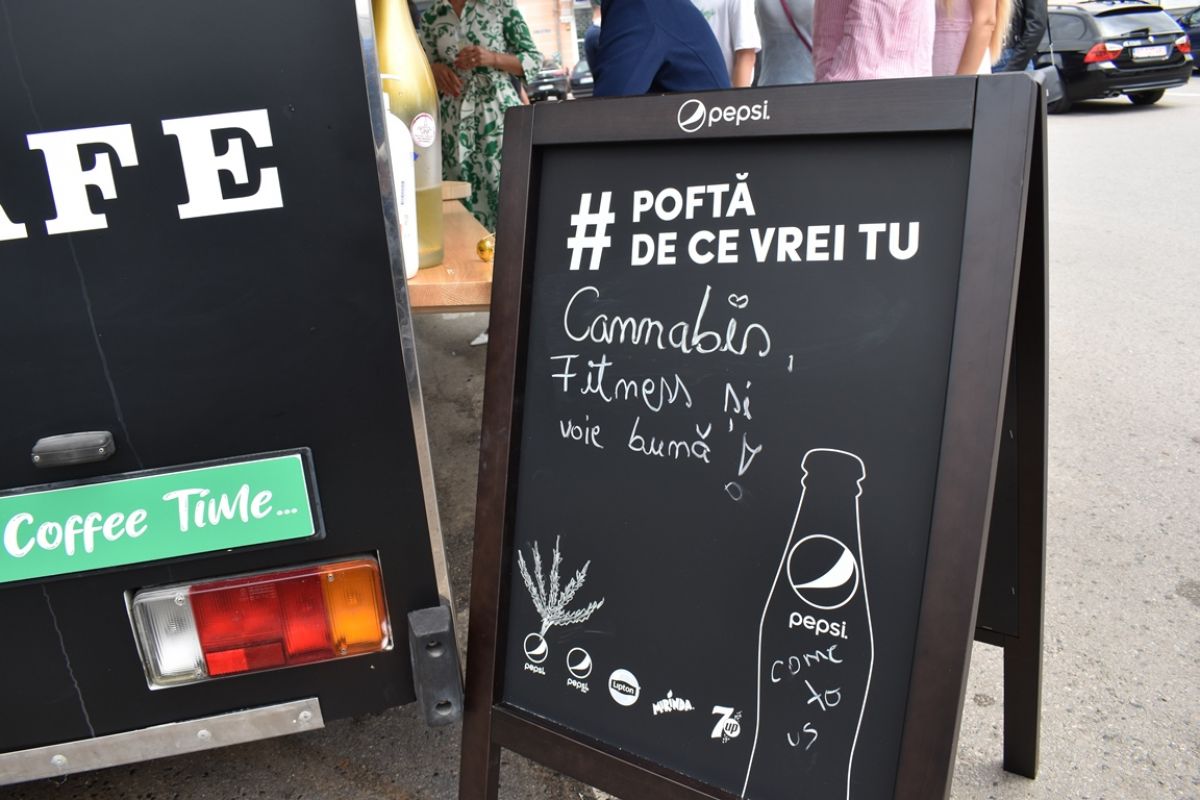 AFE
Coffee Time...
pepsi.
# POFTĂ
DE CE VREI TU
Cannabis,
Fitness și
voie bună!
pepsi.
come
to
us
pepsi.
pepsi.
Lipton
MIRINDA
7up